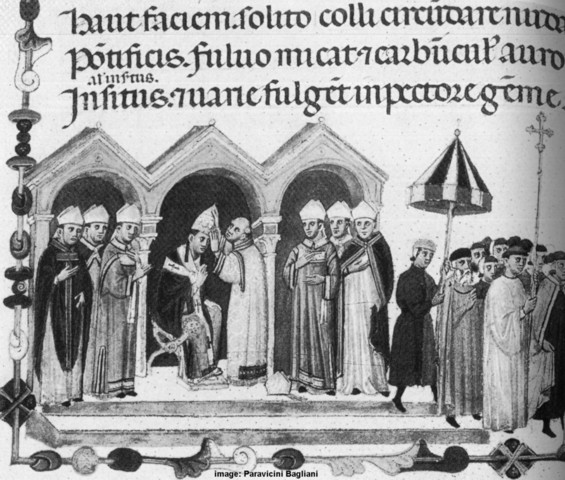 haut faciem. solito colli circūdare nuda
Pōtificis. fuluo micat ⁊ carbūcul' auro
Insitus. ⁊ uarie fulgēt in pectore gēme.
image: Paravicini Bagliani